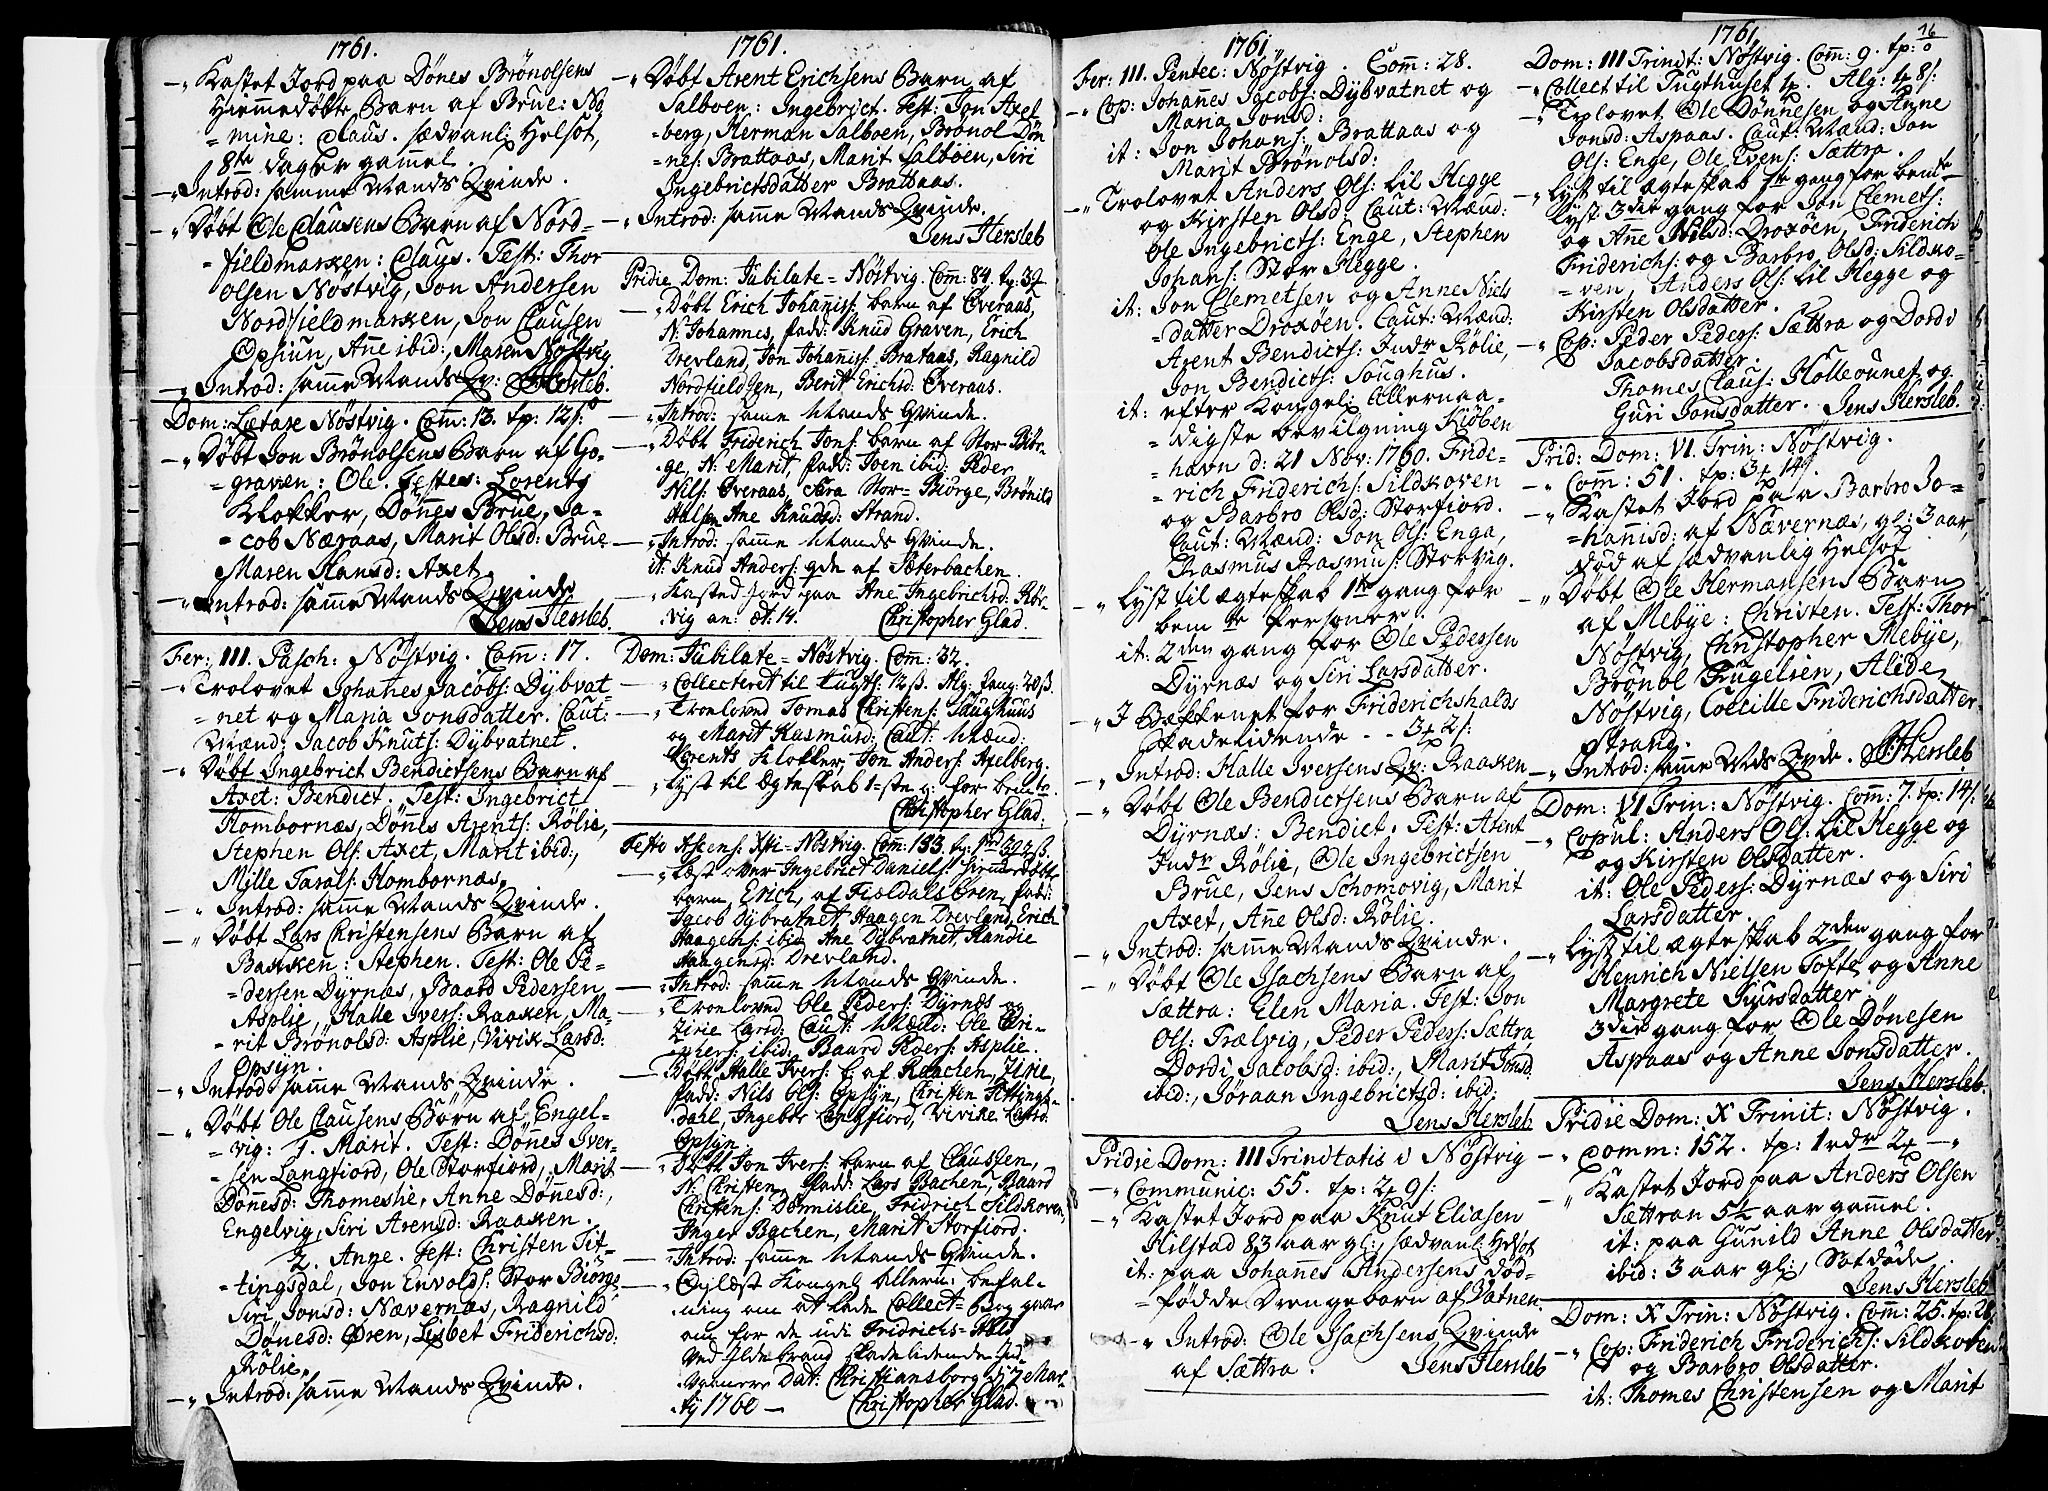 1761.
— Kastet Jord paa Dönes Brönolsens
Hiemmedöbte Barn af Brue: No
= mine: Claus. sædvanl: Helsot,
8te Dager gammel.
— Introd: samme Mands Qvinde.
— Döbt Ole Clausens Barn af Nord=
= fieldmarken: Claus. Test: Thor
Olsen Nöstvig, Jon Andersen
Nordfieldmarken, Jon Clausen
Opsiun, Añe ibid:, Maren Nöstvig
— Introd: samme Mands Qv: JHersleb.
Dom: Lætare Nöstvig. Com̃: 13. tp: 12 s:
— Döbt Jon Brönolsens Barn af Go-
= graven: Ole. Testes: Lorents
Klokker, Dönnes Brue, Ja-
= cob Næraas, Marit Olsd: Brue
Maren Hansd: Axet.
— Introd: samme Mands Qvinde
Jens Hersleb.
Fer: III. Pasch: Nöstvig. Com̃: 17.
— Trolovet Johañes Jacobs: Dybvat
= net og Maria Jonsdatter. Caut:
Mænd: Jacob Knuts: Dybvatnet.
— Döbt Ingebrict Bendictsens Barn af
Axet: Bendict. Test: Ingebrict
Hombornæs, Dönes Arents: Rölie,
Stephen Ols: Axet, Marit ibid:,
Mille Tarals: Hombornæs.
— Introd: samme Mands Qvinde.
— Döbt Lars Christensens Barn af
Bakken: Stephen. Test: Ole Pe-
= dersen Dyrnæs, Baard Pedersen
Asplie, Halle Ivers: Raaken, Ma-
= rit Brönolsd: Asplie, Vivik Larsd:
Opsyn.
— Introd: samme Mands Qvinde.
— Döbt Ole Clausens Börn af Engel-
= vig: 1. Marit. Test: Dönnes Iver-
= sen Langfiord, Ole Storfiord, Marit
Dönnesd: Thomeslie, Anne Dönnesd:,
Engelvig, Siri Arensd: Raaken.
2. Anne. Test: Christen Tit-
= tingsdal, Jon Envolds: Stor Biörge
Siri Jonsd: Nævernæs, Ragnild
Dönesd: Øren, Lisbet Friderichsd:
Rölie.
— Introd: samme Mands Qvinde.
1761.
— Döbt Arent Erichsens Barn af
Salboen: Ingebrict. Test: Jon Axel-
= berg, Herman Salboen, Brönol Dön
= nes: Brattaas, Marit Salböen, Siri
Ingebrictsdatter Brattaas.
— Introd: samme Mands Qvinde.
Jens Hersleb
Pridie Dom: Jubilate = Nöstvig. Com̃: 84. tp: 3
— Döbt Erich Johanis: barn af Overaas,
N: Johannes, fadd: Knud Graven, Erich
Drevland, Jon Johanis: Brataas, Ragnild
Nordfieldsen, Berit Erichsd: Øveraas.
— Introd: samme Mands Qvinde.
— Döbt Friderich Jons: barn af Stor-Biör-
ge, N: Marit, fadd: Joen ibid: Peder
Nils: Øveraas, Sara Stor=Biörge, Brönild
Ane Knudsd: Strand.
— Introd: samme Mands Qvinde.
it: Knud Anders: qde af Sæterbachen.
— Kasted Jord paa Ane Ingebrichsd: Rör-
vig an: æt: 14. Christopher Glad.
Dom: Jubilate = Nöstvig. Com̃: 32.
— Collecteret til Tugts: 12 ß. Alg: pung: 20 ß.
— Troeloved Tomas Christens: Saughuus
og Marit Rasmusd: Caut: Mænd:
Lorents Klokker, Jon Anders: Axelberg.
— Lyst til Ægteskab 1=ste g: for bemte.
Christopher Glad.
Festo Ascens: Xsti = Nöstvig. Com̃: 133. tp:
— Læst over Ingebrict Daniels: hiemedöbte
barn, Erich, af Fieldals Ören, fadd:
Jacob Dybvatnet, Haagen Drevland, Erich
Haagens: ibid, Ane Dybvatnet, Randie
Haagensd: Drevland.
— Introd: samme Mands Qvinde.
— Troeloved Ole Peders: Dyrnæs og
Zirie Larsd: Caut: Mænd: Ole Chri-
sophers: ibid: Baard Peders: Asplie.
— Döbt Halle Ivers: b. af Raachen, Zirie,
fadd: Nils Ols: Opsÿn, Christen Tittings-
dahl, Ingebor Langfiord, Vivike Larsd:
Opsÿn.
— Döbt Jon Ivers: barn af Claussen,
N: Christen, fadd: Lars Bachen, Baard
Christens: Dönnislie, Fridrich Sildkoven,
Inger Bachen, Marit Storfiord.
— Introd: samme Mands Qvinde.
— Oplæst Kongel: Allern: befal-
ning om at lade Collect=Bog gaae
om for de udi Fridrichs=Hald
ved Ildebrand skadelidende Ind
vaanere Dat: Christiansborg d: 7 Mar-
tij 1760 — Christopher Glad.
1761
Fer: III. Pentec: Nöstvig. Com̃: 28.
— Cop: Johannes Jacobs: Dybvatnet og
Maria Jonsd:
it: Jon Johans: Brattaas og
Marit Brönolsd:
— Trolovet Anders Ols: Lil Hegge
og Kirsten Olsd: Caut: Mænd:
Ole Ingebricts: Enge, Stephen
Johans: Stor Hegge.
it: Jon Clemetsen og Anne Niels
= datter Droxöen. Caut: Mænd:
Arent Bendicts: Indr Rölie,
Jon Bendicts: Soughus.
it: efter Kongel: Allernaa-
= digste bevilgning Kiöben
= havn d: 21 Nov: 1760. Fride-
= rich Friderichs: Sildkoven
og Barbro Olsd: Storfiord.
Caut: Mænd: Jon Ols: Enga,
Rasmus Rasmus: Storvig.
— Lyst til ægteskab 1te gang for
bemte Personer.
it: 2den gang for Ole Pedersen
Dyrnæs og Siri Larsdatter.
— I Bekkenet for Friderichshalds
skadelidende - - 3 2 s:
— Introd: Halle Iversens Qv: Raaken
— Döbt Ole Bendictsens Barn af
Dyrnæs: Bendict. Test: Arent
Indr Rölie, Ole Ingebrictsen
Brue, Jens Schomovig, Marit
Axet, Añe Olsd: Rölie.
— Introd: samme Mands Qvinde.
— Döbt Ole Isachsens Barn af
Sættra: Elen Maria. Test: Jon
Ols: Trælvig, Peder Peders: Sættra,
Dordi Jacobsd: ibid:, Marit Jonsd:
ibid:, Jöraan Ingebrictsd: ibid:
Jens Hersleb
Pridie Dom: III Trinitatis i Nöstvig
— Communic: 55. tp: 2 9 s:
— Kastet Jord paa Knut Eliasen
Hilstad 83 aar gl:, sædvanl: Helsot
it: paa Johannes Andersens död-
= födde Drengebarn af Vatnen.
— Introd: Ole Isachsens Qvinde
af Sættra. Jens Hersleb
1761. 16
Dom: III Trinit: Nöstvig. Com̃: 9. tp: 0
— Collect til Tugthuset 4. Alg: 4 8 s:
— Trolovet Ole Dönnesen og Añne
Jonsd: Aspaas. Caut: Mænd: Jon
Ols: Enge, Ole Evens: Sættra.
— Lyst til ægteskab 1te gang for bemte —
Lyst 3die gang for Jon Clemets:
og Añe Nilsd: Droxöen, Friderich
Friderichs: og Barbro Olsd: Sildko-
= ven, Anders Ols: Lil Hegge og
Kirsten Olsdatter.
— Cop: Peder Peders: Sættra og Dordi
Jacobsdatter.
Thomes Claus: Holleounet og
Guri Jonsdatter. Jens Hersleb.
Prid: Dom: VI Trin: Nöstvig.
— Com̃: 51. tp: 3 14 s.
— Kastet Jord paa Barbro Jo-
= hannisd: af Nævernæs, gl: 3 aar,
död af sædvanlig Helsot
— Döbt Ole Hermansens Barn
af Mebye: Christen. Test: Thor
Nöstvig, Christopher Mebye,
Brönol Engelsen, Alide
Nöstvig, Coecille Friderichsdatter
Strand.
— Introd: sam̃e Mds Qvde. JHersleb
Dom: VI Trin: Nöstvig. Com̃: 7. tp: 14 s:
— Copul: Anders Ols: Lil Hegge og
og Kirsten Olsdatter.
it: Ole Peders: Dyrnæs og Siri
Larsdatter.
— Lyst til ægteskab 2den gang for
Henrich Nielsen Tofte og Anne
Margrete Siursdatter.
3die gang for Ole Dönesen
Aspaas og Anne Jonsdatter.
Jens Hersleb.
Pridie Dom: X Trinit: Nöstvig.
— Comm: 152. tp: 1 rdr 2 —
— Kastet Jord paa Anders Olsen
Sættran 5½ aar gammel.
it: paa Gunild Anne Olsdatter
ibid: 3 aar gl:, Sotdöde.
Jens Hersleb
Dom: X Trin: Nöstvig. Com̃: 25. tp: 28
— Cop: Friderich Friderichs: Sildkoven
og Barbro Olsdatter.
it: Thomes Christensen og Marit